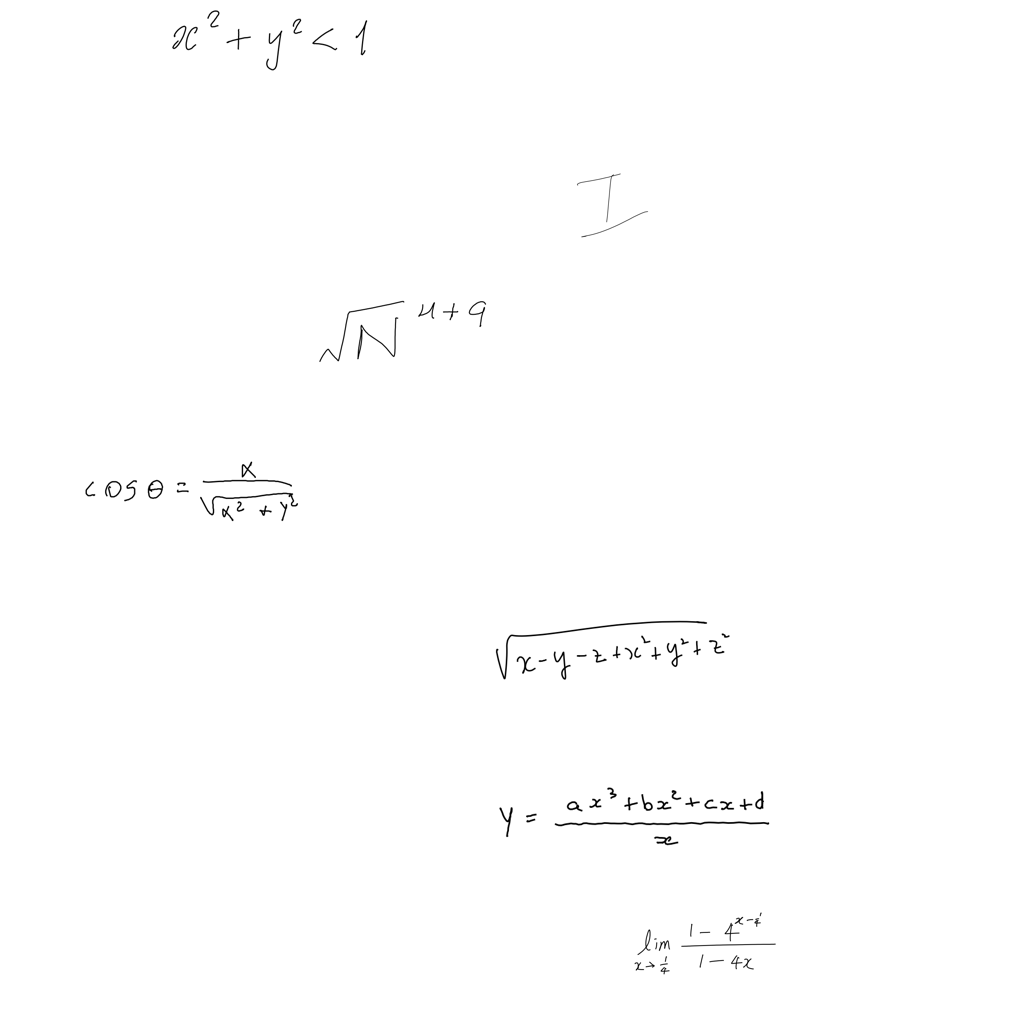 x² + y² < 1
I
√N ^{4+9}
cos θ = x / √(x² + y²)
√(x - y - z + x² + y² + z²)
y = (ax³ + bx² + cx + d) / x
lim_{x→1/4} (1 - 4^{x - 1/4}) / (1 - 4x)